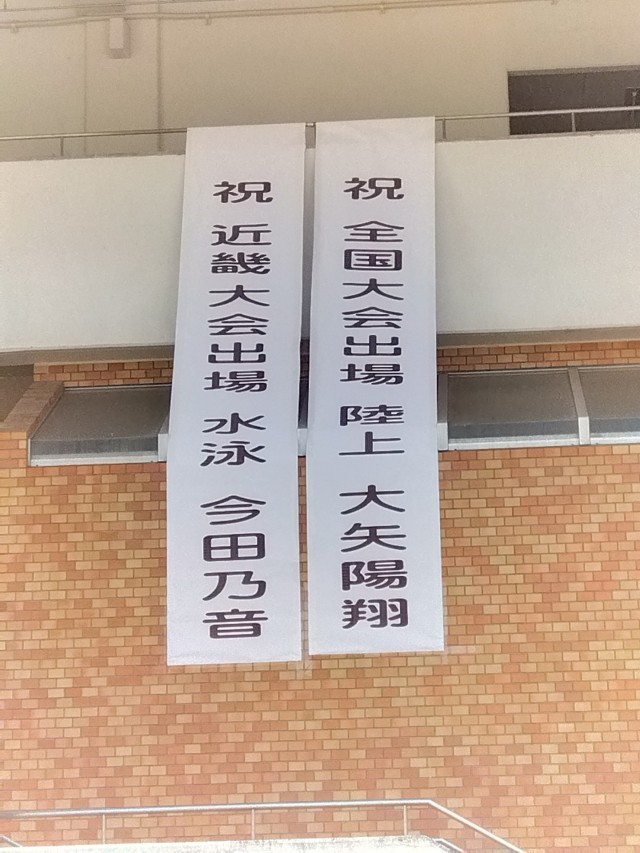 祝 全国大会出場 陸上 大矢陽翔
祝 近畿大会出場 水泳 今田乃音